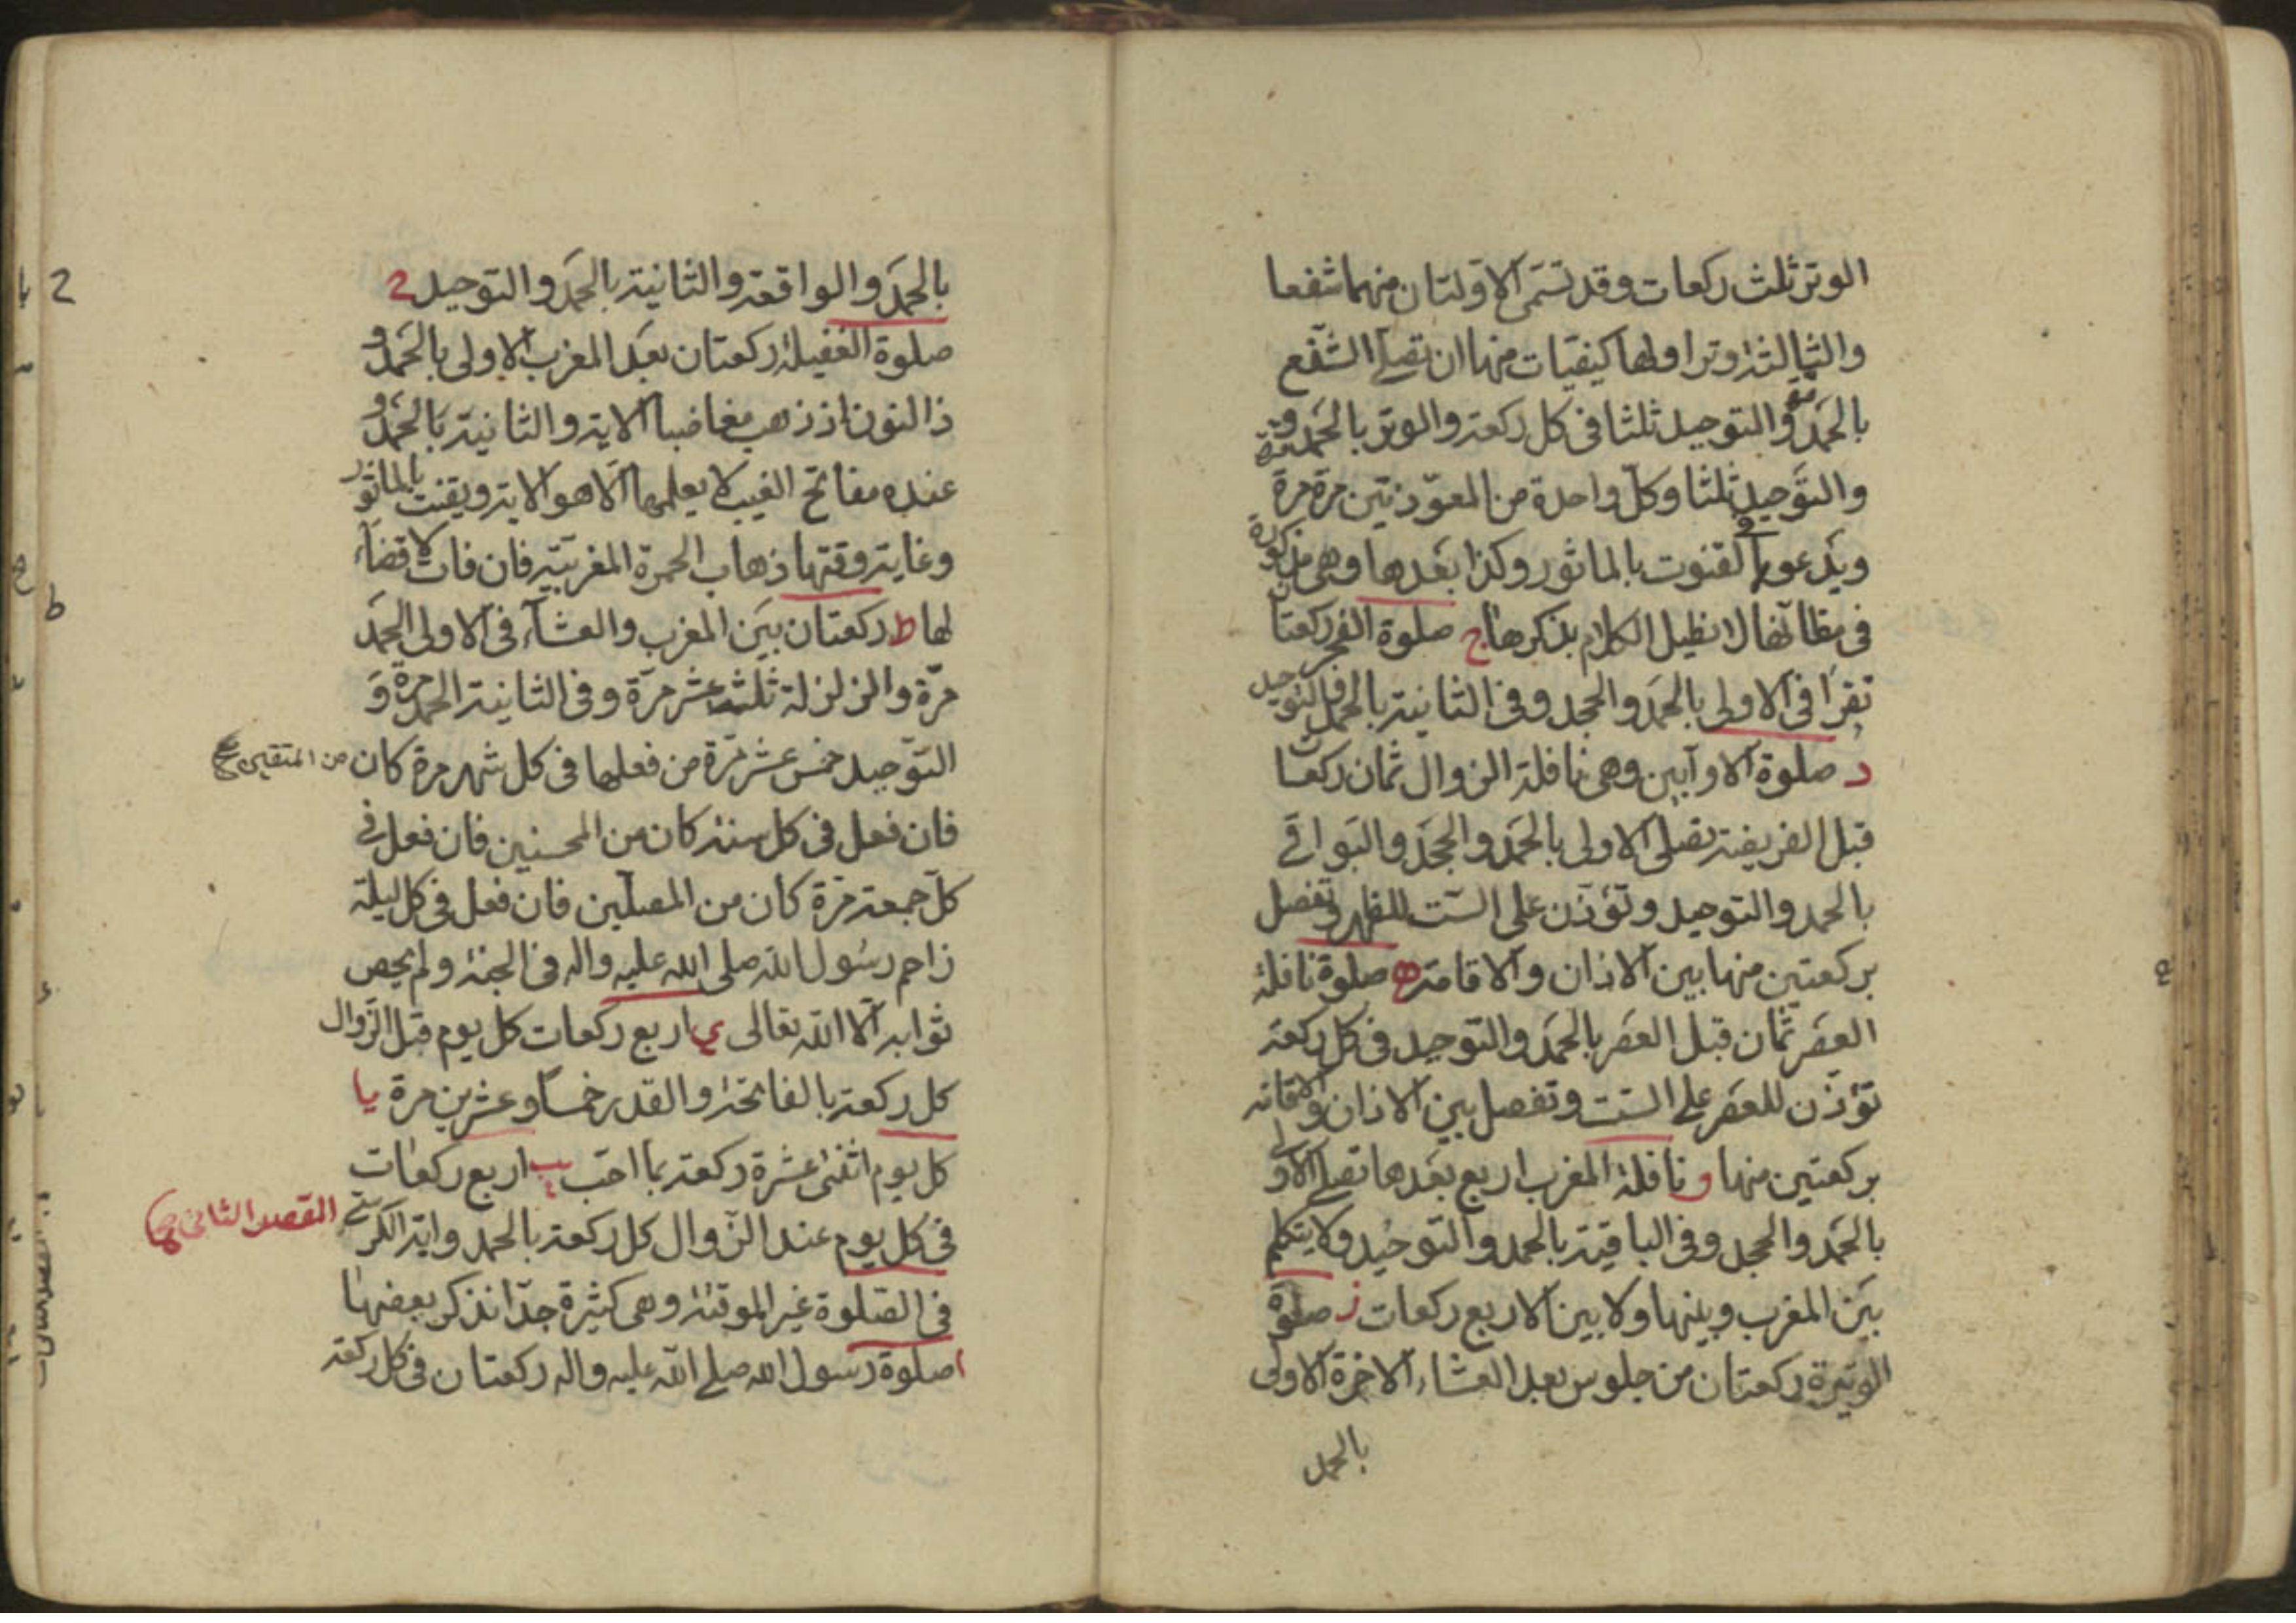 الوتر ثلث ركعات وقد تسمى الاولتان منهما شفعا
والثالثة وترا ولها كيفيات منها ان تصلى الشفع
بالحمد مرة والتوحيد ثلثا فى كل ركعة والوتر بالحمد مرة
والتوحيد ثلثا وكل واحدة من المعوذتين مرة مرة
ويدعو فى القنوت بالماثور وكذا بعدها وهى مذكورة
فى مظانها لا نطيل الكلام بذكرها ج صلوة الفجر ركعتان
تقرا فى الاولى بالحمد والجحد وفى الثانية بالحمد والتوحيد
د صلوة الاوابين وهى نافلة الزوال ثمان ركعات
قبل الفريضة تصلى الاولى بالحمد والجحد والبواقى
بالحمد والتوحيد وتؤذن على الست للظهر وتفصل
بركعتين منها بين الاذان والاقامة ه صلوة نافلة
العصر ثمان قبل العصر بالحمد والتوحيد فى كل ركعة
تؤذن للعصر على الست وتفصل بين الاذان والاقامة
بركعتين منها و نافلة المغرب اربع بعدها تصلى الاولى
بالحمد والجحد وفى الباقية بالحمد والتوحيد ولا يتكلم
بين المغرب وبينها ولا بين الاربع ركعات ز صلوة
الوتيرة ركعتان من جلوس بعد العشاء الاخرة الاولى
بالحمد
بالحمد والواقعة والثانية بالحمد والتوحيد ح
صلوة الغفيلة ركعتان بعد المغرب الاولى بالحمد و
ذا النون اذ ذهب مغاضبا الاية والثانية بالحمد و
عنده مفاتح الغيب لا يعلمها الا هو الاية ويقنت بالماثور
وغاية وقتها ذهاب الحمرة المغربية فان فات لا قضاء
لها ط ركعتان بين المغرب والعشاء فى الاولى الحمد
مرة والزلزلة ثلث عشر مرة وفى الثانية الحمد مرة و
التوحيد خمس عشر مرة من فعلها فى كل شهر مرة كان من المتقين صح
فان فعل فى كل سنة كان من المحسنين فان فعل فى
كل جمعة مرة كان من المصلين فان فعل فى كل ليلة
زاحم رسول الله صلى الله عليه واله فى الجنة ولم يحص
ثوابه الا الله تعالى ى اربع ركعات كل يوم قبل الزوال
كل ركعة بالفاتحة والقدر خمسا وعشرين مرة يا
كل يوم اثنى عشرة ركعة بما احب يب اربع ركعات
فى كل يوم عند الزوال كل ركعة بالحمد واية الكرسى المقصد الثانى
فى الصلوة غير الموقتة وهى كثيرة جدا نذكر بعضها
ا صلوة رسول الله صلى الله عليه واله ركعتان فى كل ركعة